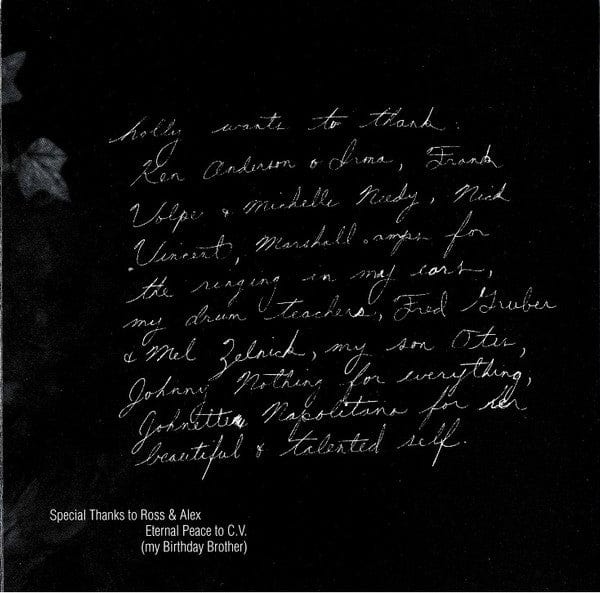 holly wants to thank:
Ken Anderson & Irma, Frank
Volpe & Michelle Niedy, Nick
Vincent, Marshall amps for
the ringing in my ears,
my drum teachers, Fred Gruber
& Mel Zelnick, my son Otis,
Johnny Nothing for everything,
Johnette Napolitano for her
beautiful & talented self.
Special Thanks to Ross & Alex
Eternal Peace to C.V.
(my Birthday Brother)